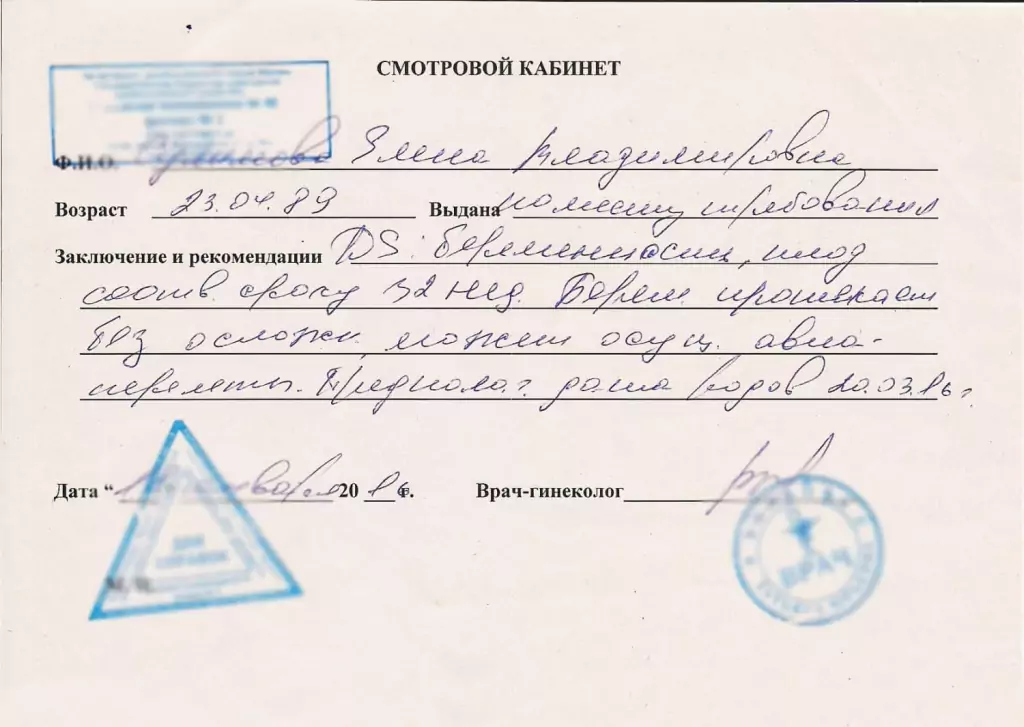 СМОТРОВОЙ КАБИНЕТ
Ф.И.О. Елена Владимировна
Возраст 23.04.89 Выдана по месту требования
Заключение и рекомендации DS: беременность, плод
соотв. сроку 32 нед. Берем. протекает
без осложн. может осущ. авиа-
перелеты. Предполаг. дата родов 20.03.16 г.
Дата “ января 20 16 г. Врач-гинеколог
М.П.
ВРАЧ